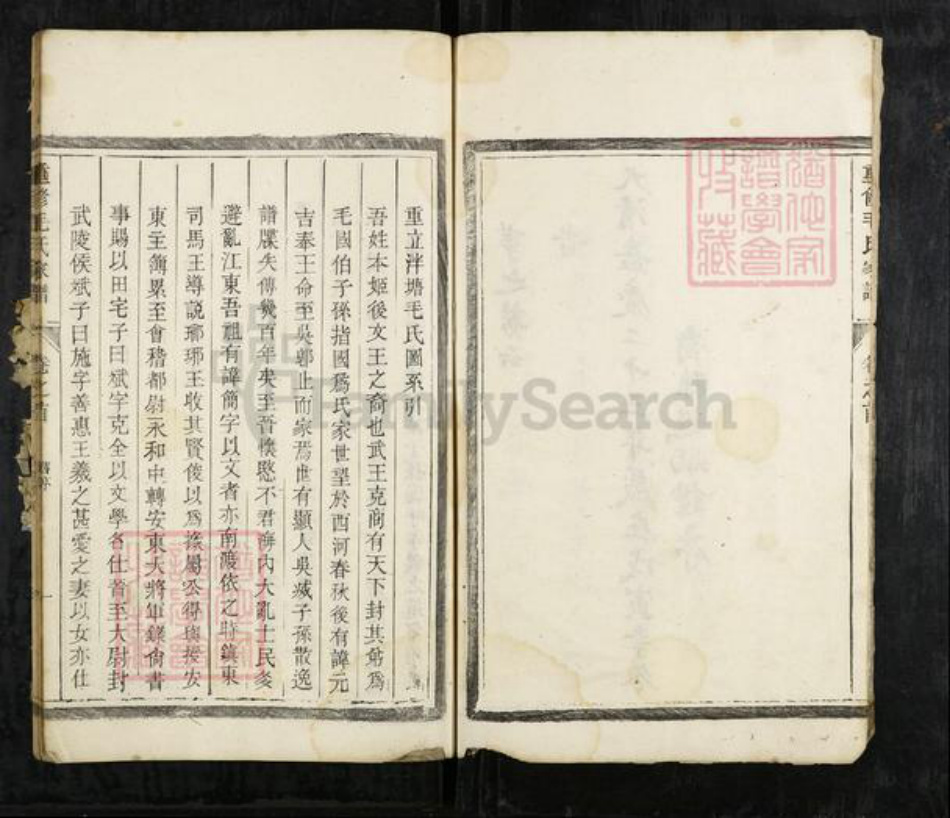 重修毛氏家譜
卷之首
重立泮塘毛氏圖系引
吾姓本姬後文王之裔也武王克商有天下封其弟爲
毛國伯子孫指國爲氏家世望於西河春秋後有諱元
吉奉王命至吳郭止而家焉世有顯人吳滅子孫散逸
譜牒失傳幾百年矣至晉懷愍不君海內大亂士民多
避亂江東吾祖有諱簡字以文者亦南渡依之時鎮東
司馬王導説瑯琊王收其賢俊以爲掾屬公得與授安
東主簿累至會稽都尉永和中轉安東大將軍錄尙書
事賜以田宅子曰斌字克全以文學各仕晉至大尉封
武陵侯斌子曰施字善惠王羲之甚愛之妻以女亦仕
一
猶他家
譜學會
收藏
FamilySearch